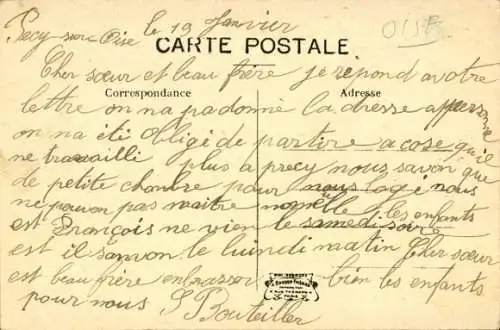 Pecy-sur-Oise le 19 Janvier
OISE
CARTE POSTALE
Cher sœur et beau frère je répond a votre
Correspondance
Adresse
lettre on na pa donné la dresse a personne
on na eti obligé de partire a cose qu'il
ne travailli plus a precy nous savon que
de petite chambre pour nous logé nous
ne pouvon pas maitre les enfants
est François ne vien le samedi soir
est il sanvon le luindi matin Cher sœur
est beau frère enbrasser bien les enfants
pour nous S Bouteiller